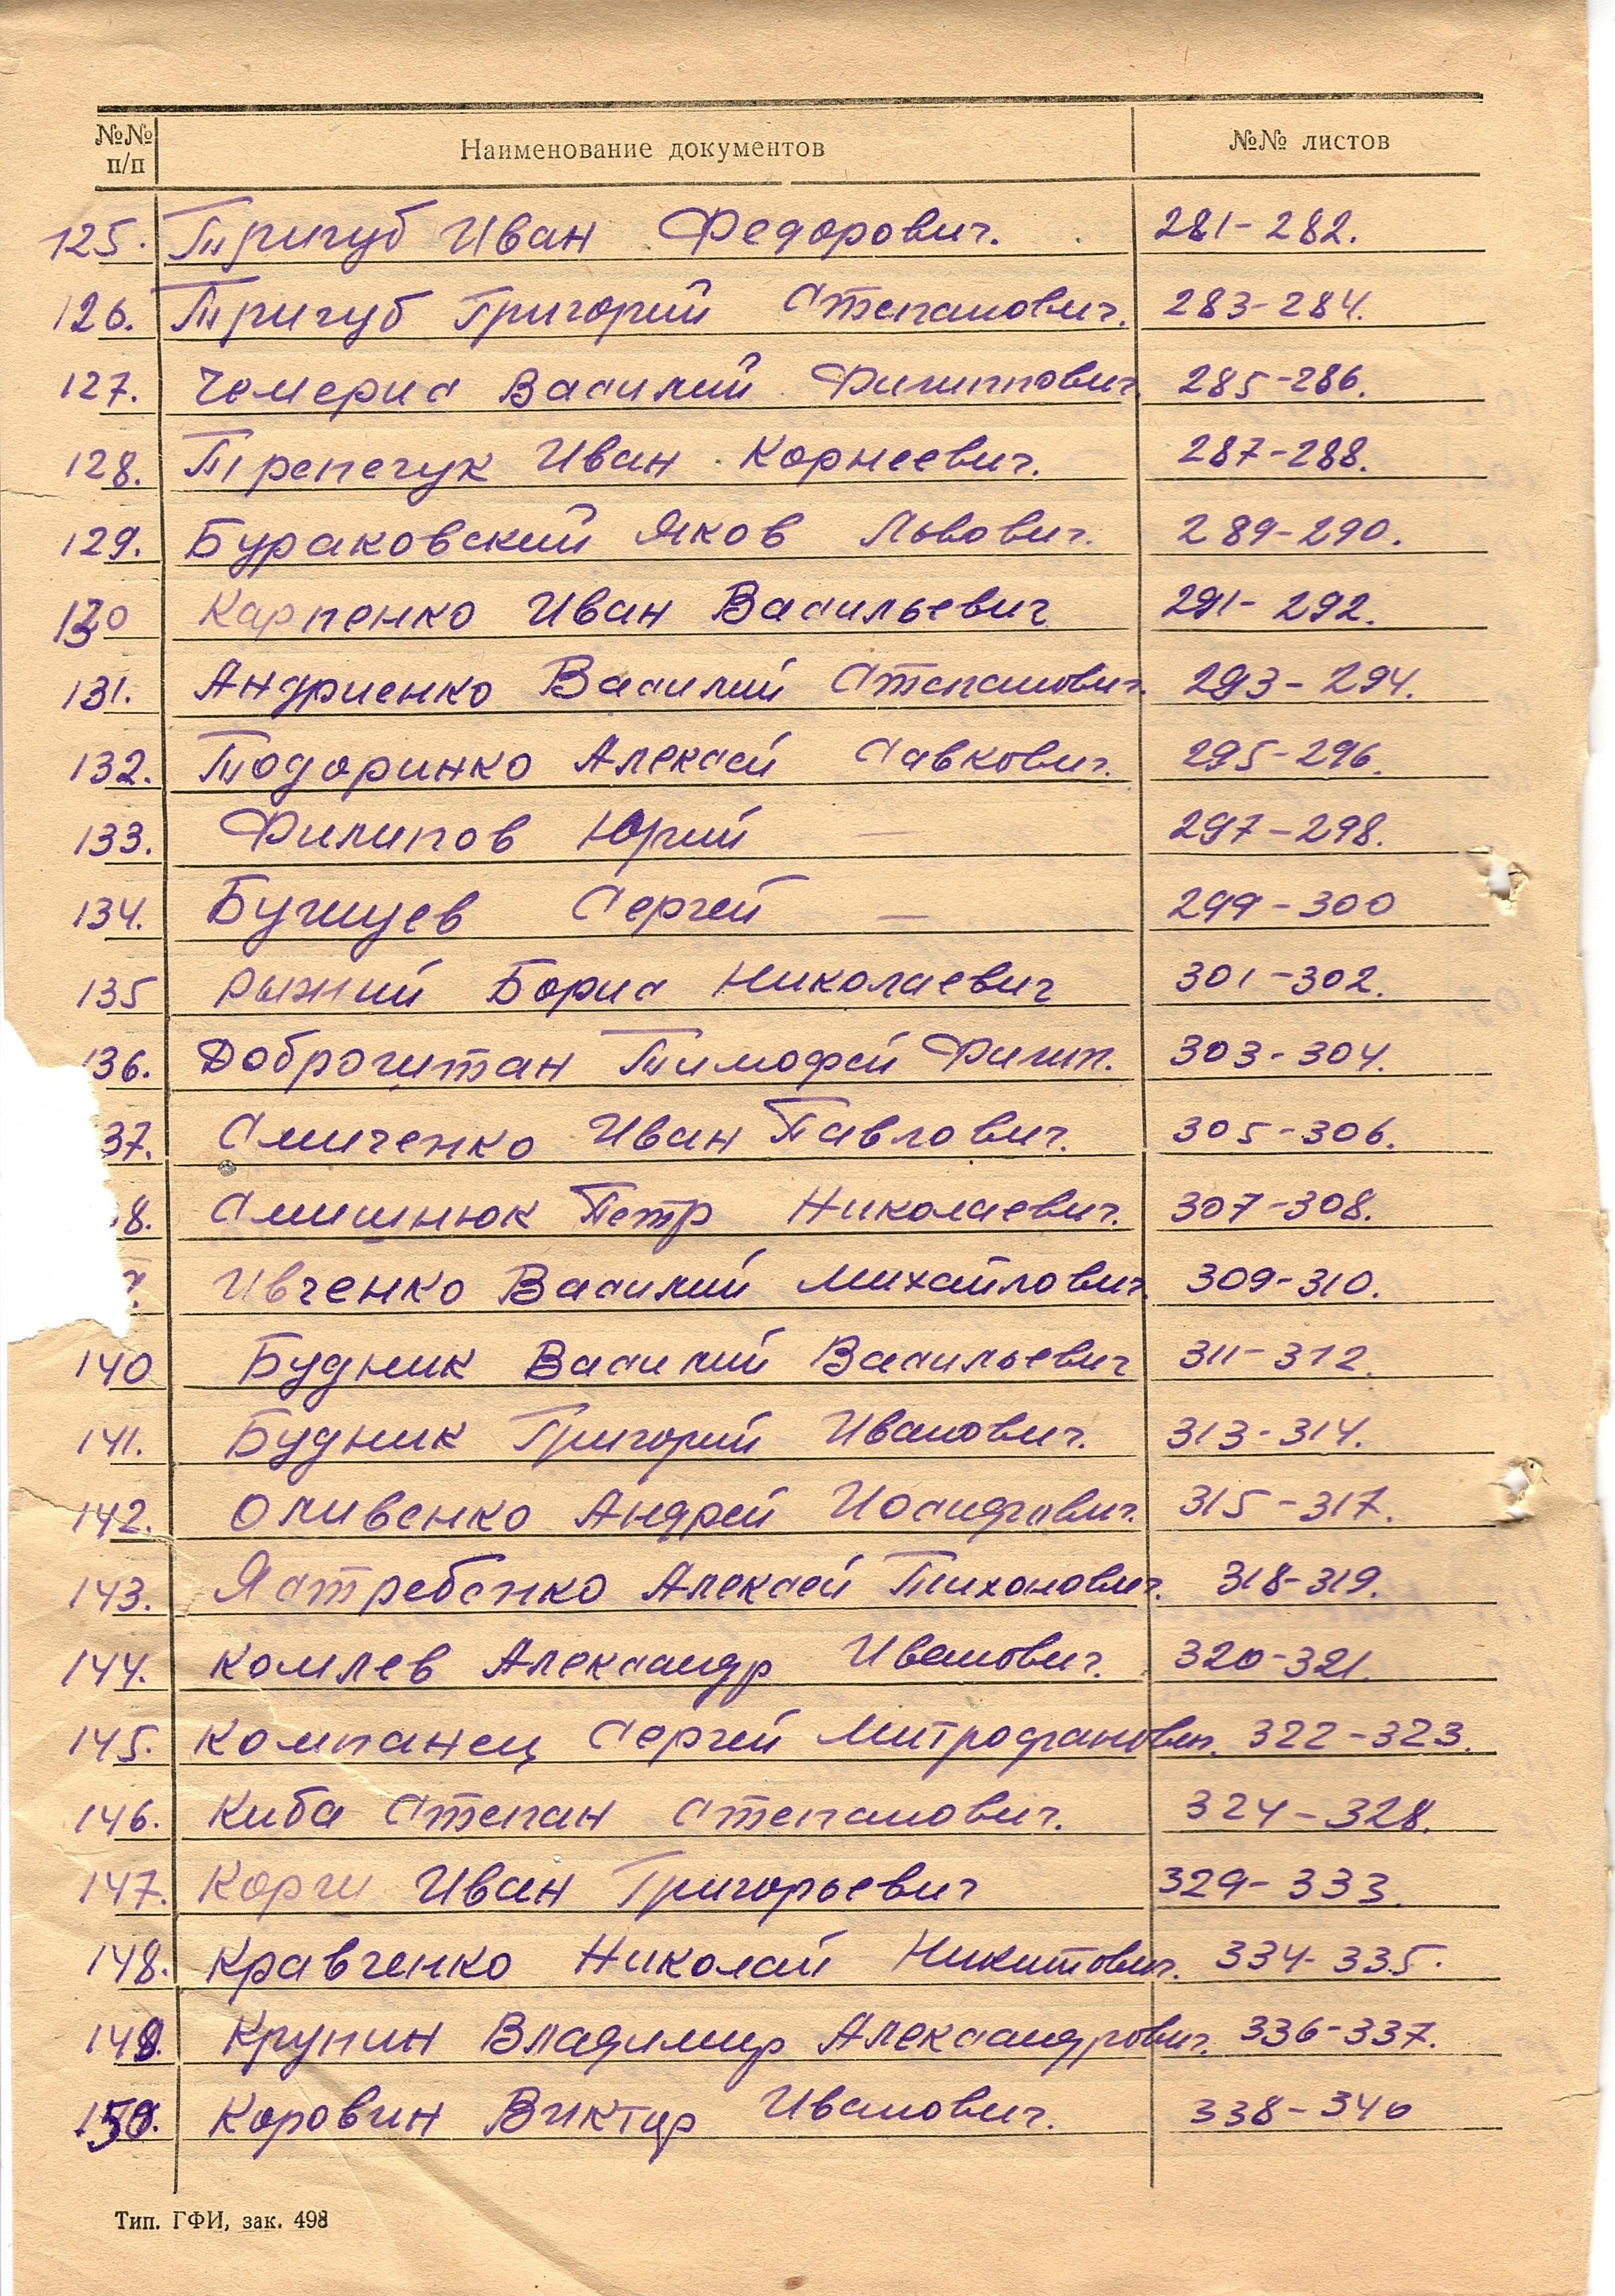 №№ п/п Наименование документов №№ листов
125. Тригуб Иван Федорович. 281-282.
126. Тригуб Григорий Степанович. 283-284.
127. Чемерис Василий Филиппович. 285-286.
128. Трепечук Иван Корнеевич. 287-288.
129. Бураковский Яков Львович. 289-290.
130 Карпенко Иван Васильевич 291-292.
131. Андриенко Василий Степанович. 293-294.
132. Тодоринко Алексей Савкович. 295-296.
133. Филипов Юрий — 297-298.
134. Сергей — 299-300
135 Рыжий Борис Николаевич 301-302.
36. Доброчитан Тимофей Филип. 303-304.
37. Симченко Иван Павлович. 305-306.
8. Николаевич. Петр 307-308.
Ивченко Василий Михайлович. 309-310.
140 Будник Василий Васильевич 311-312.
141. Будник Григорий Иванович. 313-314.
142. Оливенко Андрей Иосифович. 315-317.
143. Ястребенко Алексей Тихонович. 318-319.
144. Комлев Александр Иванович. 320-321.
145. Компанец Сергей Митрофанович. 322-323.
146. Киба Степан Степанович. 324-328.
147. Иван Григорьевич 329-333.
148. Кравченко Николай Никитович. 334-335.
149. Крупин Владимир Александрович. 336-337.
150. Коровин Виктор Иванович. 338-340
Тип. ГФИ, зак. 498